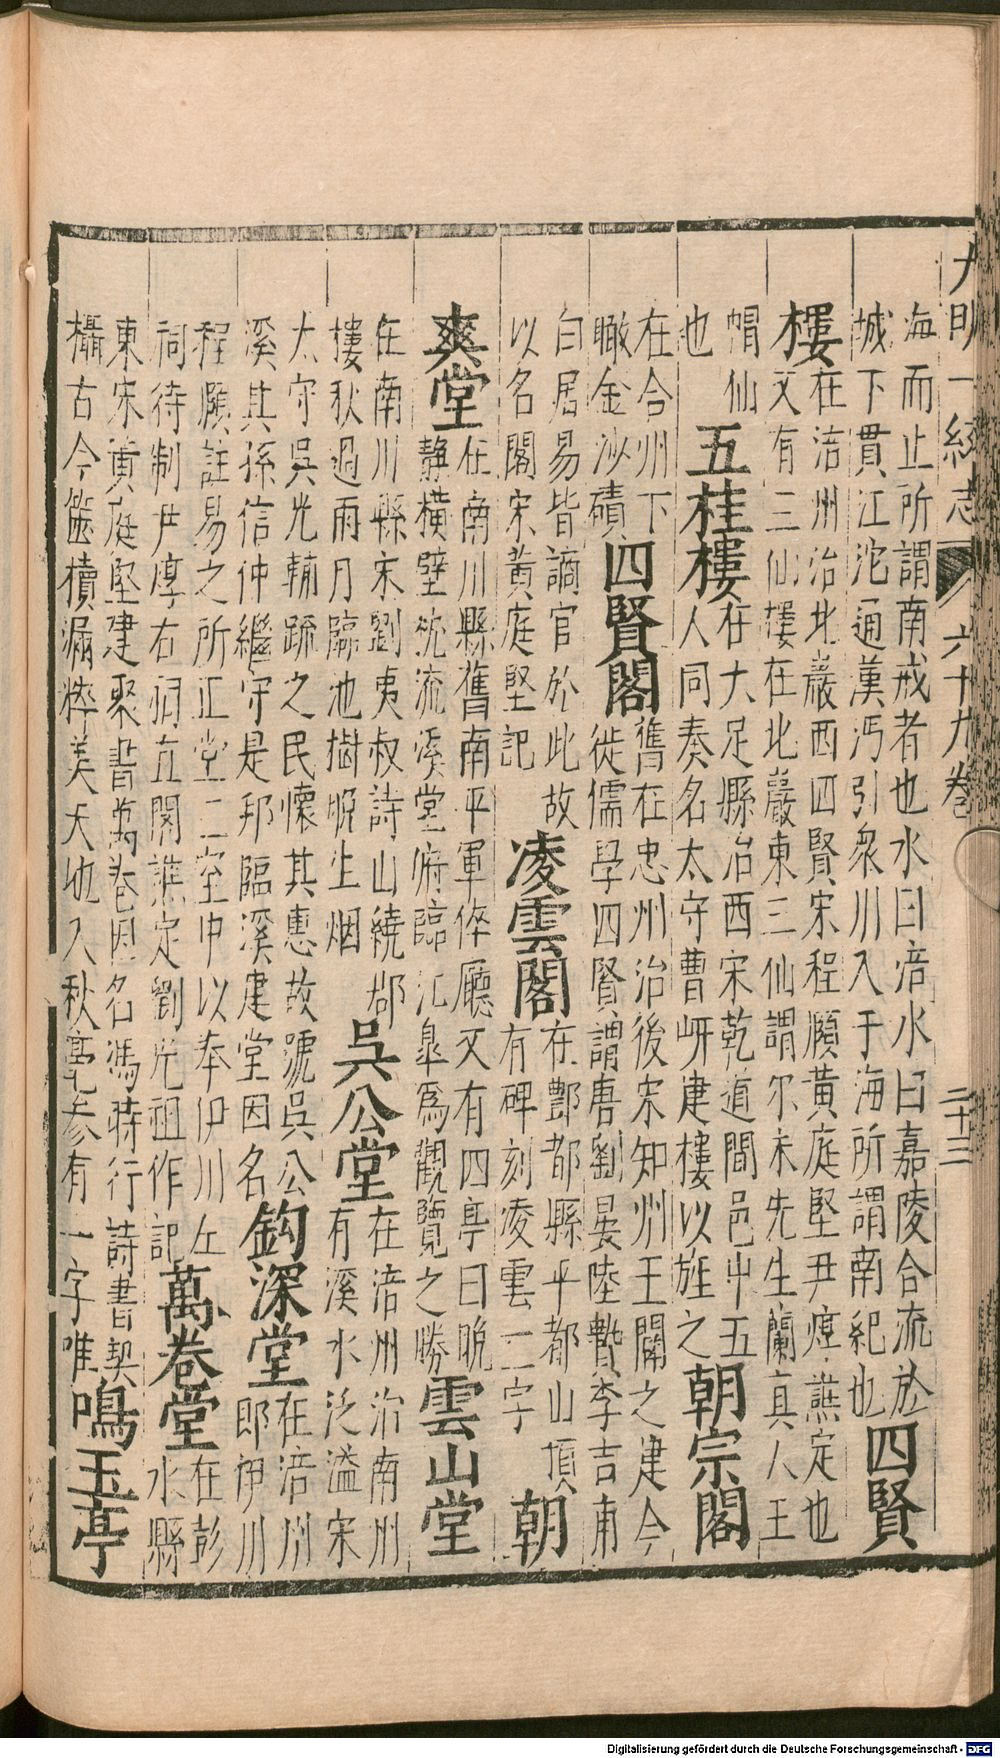 大明一統志 六十九卷 二十三
海而止所謂南戒者也水曰涪水曰嘉陵合流於
城下貫江沱通漢沔引衆川入于海所謂南紀也
四賢
樓
在涪州治北巖西四賢宋程頤黃庭堅尹焞譙定也
又有三仙樓在北巖東三仙謂尔朱先生蘭真人王
帽仙
也
五桂樓
在大足縣治西宋乾道間邑中五
人同奏名太守曹岍建樓以旌之
朝宗閣
在合州下
瞰金沙磧
四賢閣
舊在忠州治後宋知州王闢之建今
徙儒學四賢謂唐劉晏陸贄李吉甫
白居易皆謫官於此故
以名閣宋黃庭堅記
凌雲閣
在酆都縣平都山頂
有碑刻凌雲二字
朝
爽堂
在南川縣舊南平軍倅廳又有四亭曰晚
靜橫壁沈流溪堂俯臨江皐爲觀覽之勝
雲山堂
在南川縣宋劉夷叔詩山繞郡
樓秋過雨月臨池樹晚生烟
吳公堂
在涪州治南州
有溪水泛溢宋
太守吳光輔疏之民懷其惠故號吳公
溪其孫信仲繼守是邦臨溪建堂因名
鈎深堂
在涪州
郎伊川
程頤註易之所正堂二室中以奉伊川左
祠待制尹焞右祠直閣譙定劉光祖作記
萬卷堂
在彭
水縣
東宋黃庭堅建聚書萬卷因名馮時行詩書契
欇古今篋櫝漏粹美大也入秋毫參有一字唯
鳴玉亭
Digitalisierung gefördert durch die Deutsche Forschungsgemeinschaft - DFG